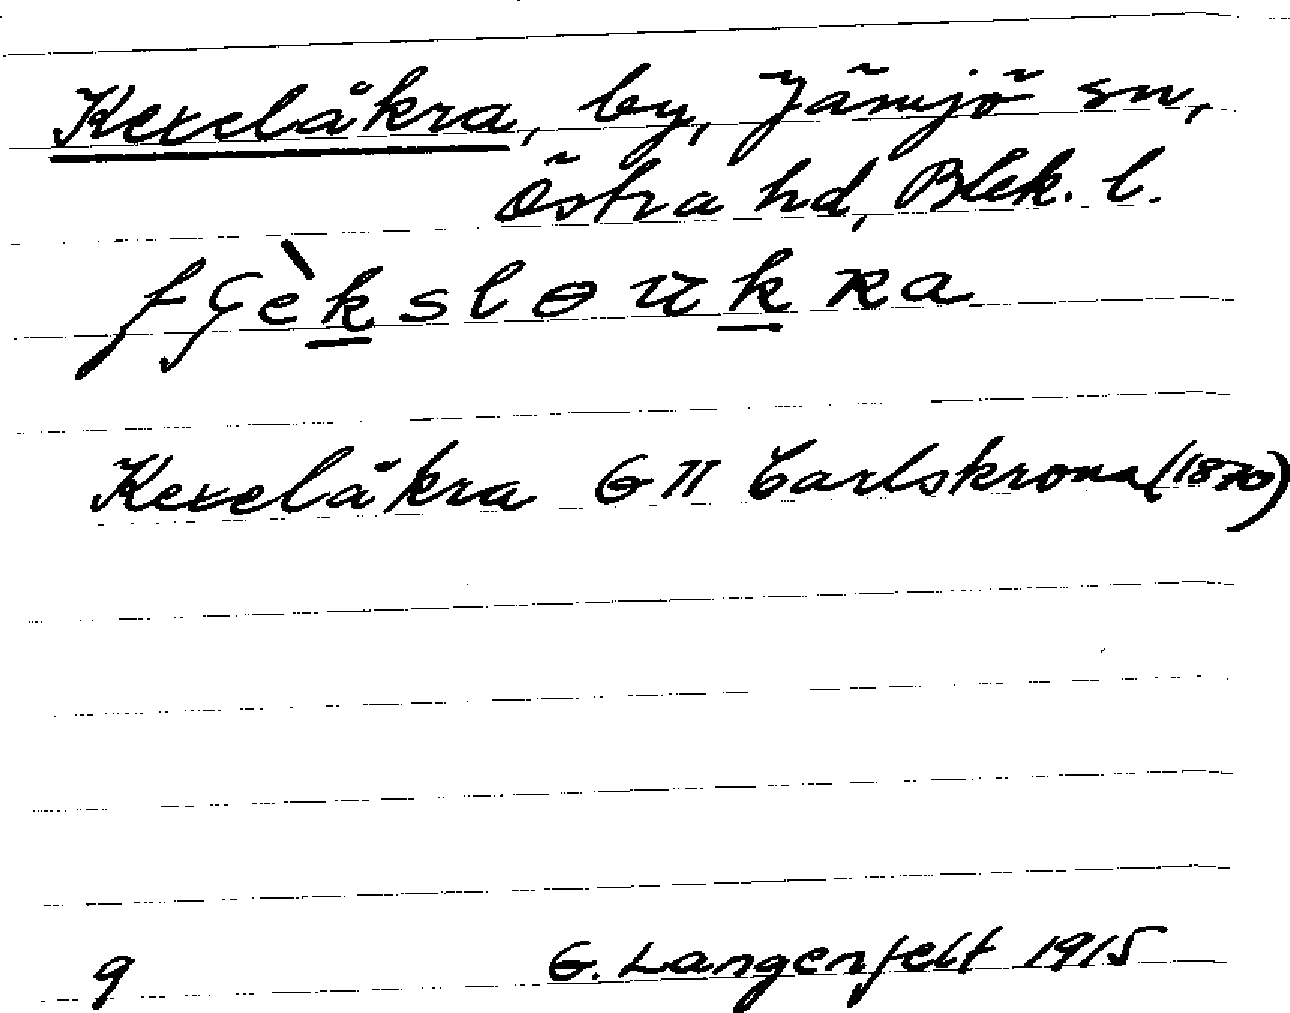 Kexelåkra, by, Jämjö sn,
Östra hd, Blek. l.
Kexelåkra GII Carlskrona (1870)
9 G. Langenfelt 1915